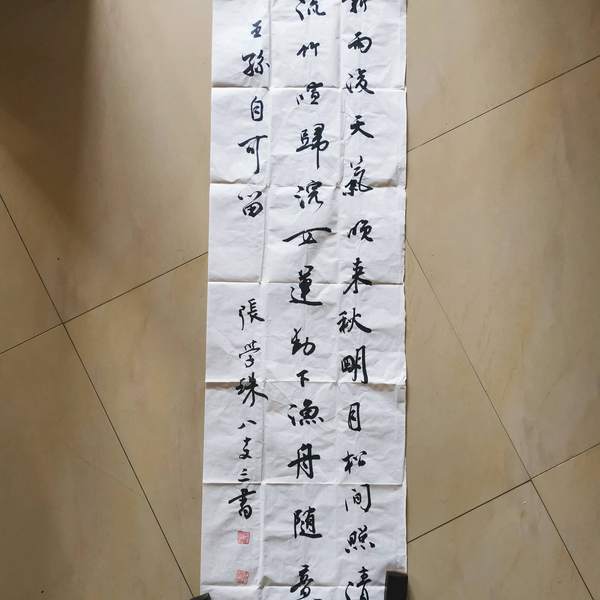 新雨後天氣晚来秋明月松间照清
流竹喧歸浣女蓮動下漁舟随意
王孫自可留
張学珠八三書